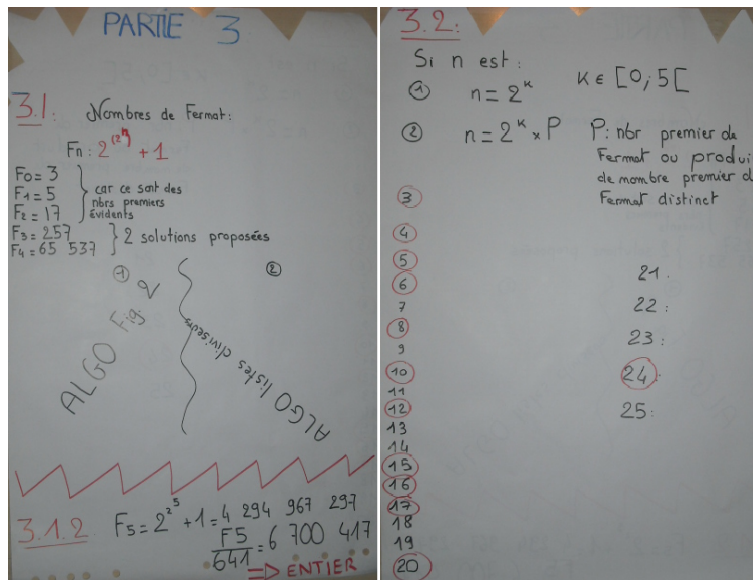 PARTIE 3
3.1: Nombres de Fermat:
Fn: 2^(2^n) + 1
F0 = 3
F1 = 5
F2 = 17
car ce sont des
nbrs premiers
évidents
F3 = 257
F4 = 65 537
2 solutions proposées
①
②
ALGO Fig. 2
ALGO listes diviseurs
3.1.2 F5 = 2^2^5 + 1 = 4 294 967 297
F5/641 = 6 700 417
⇒ ENTIER
3.2:
Si n est:
① n = 2^k K ∈ [0; 5[
② n = 2^k × P P: nbr premier de
Fermat ou produi
de nombre premier d
Fermat distinct
3
4
5
6
7
8
9
10
11
12
13
14
15
16
17
18
19
20
21:
22:
23:
24:
25: